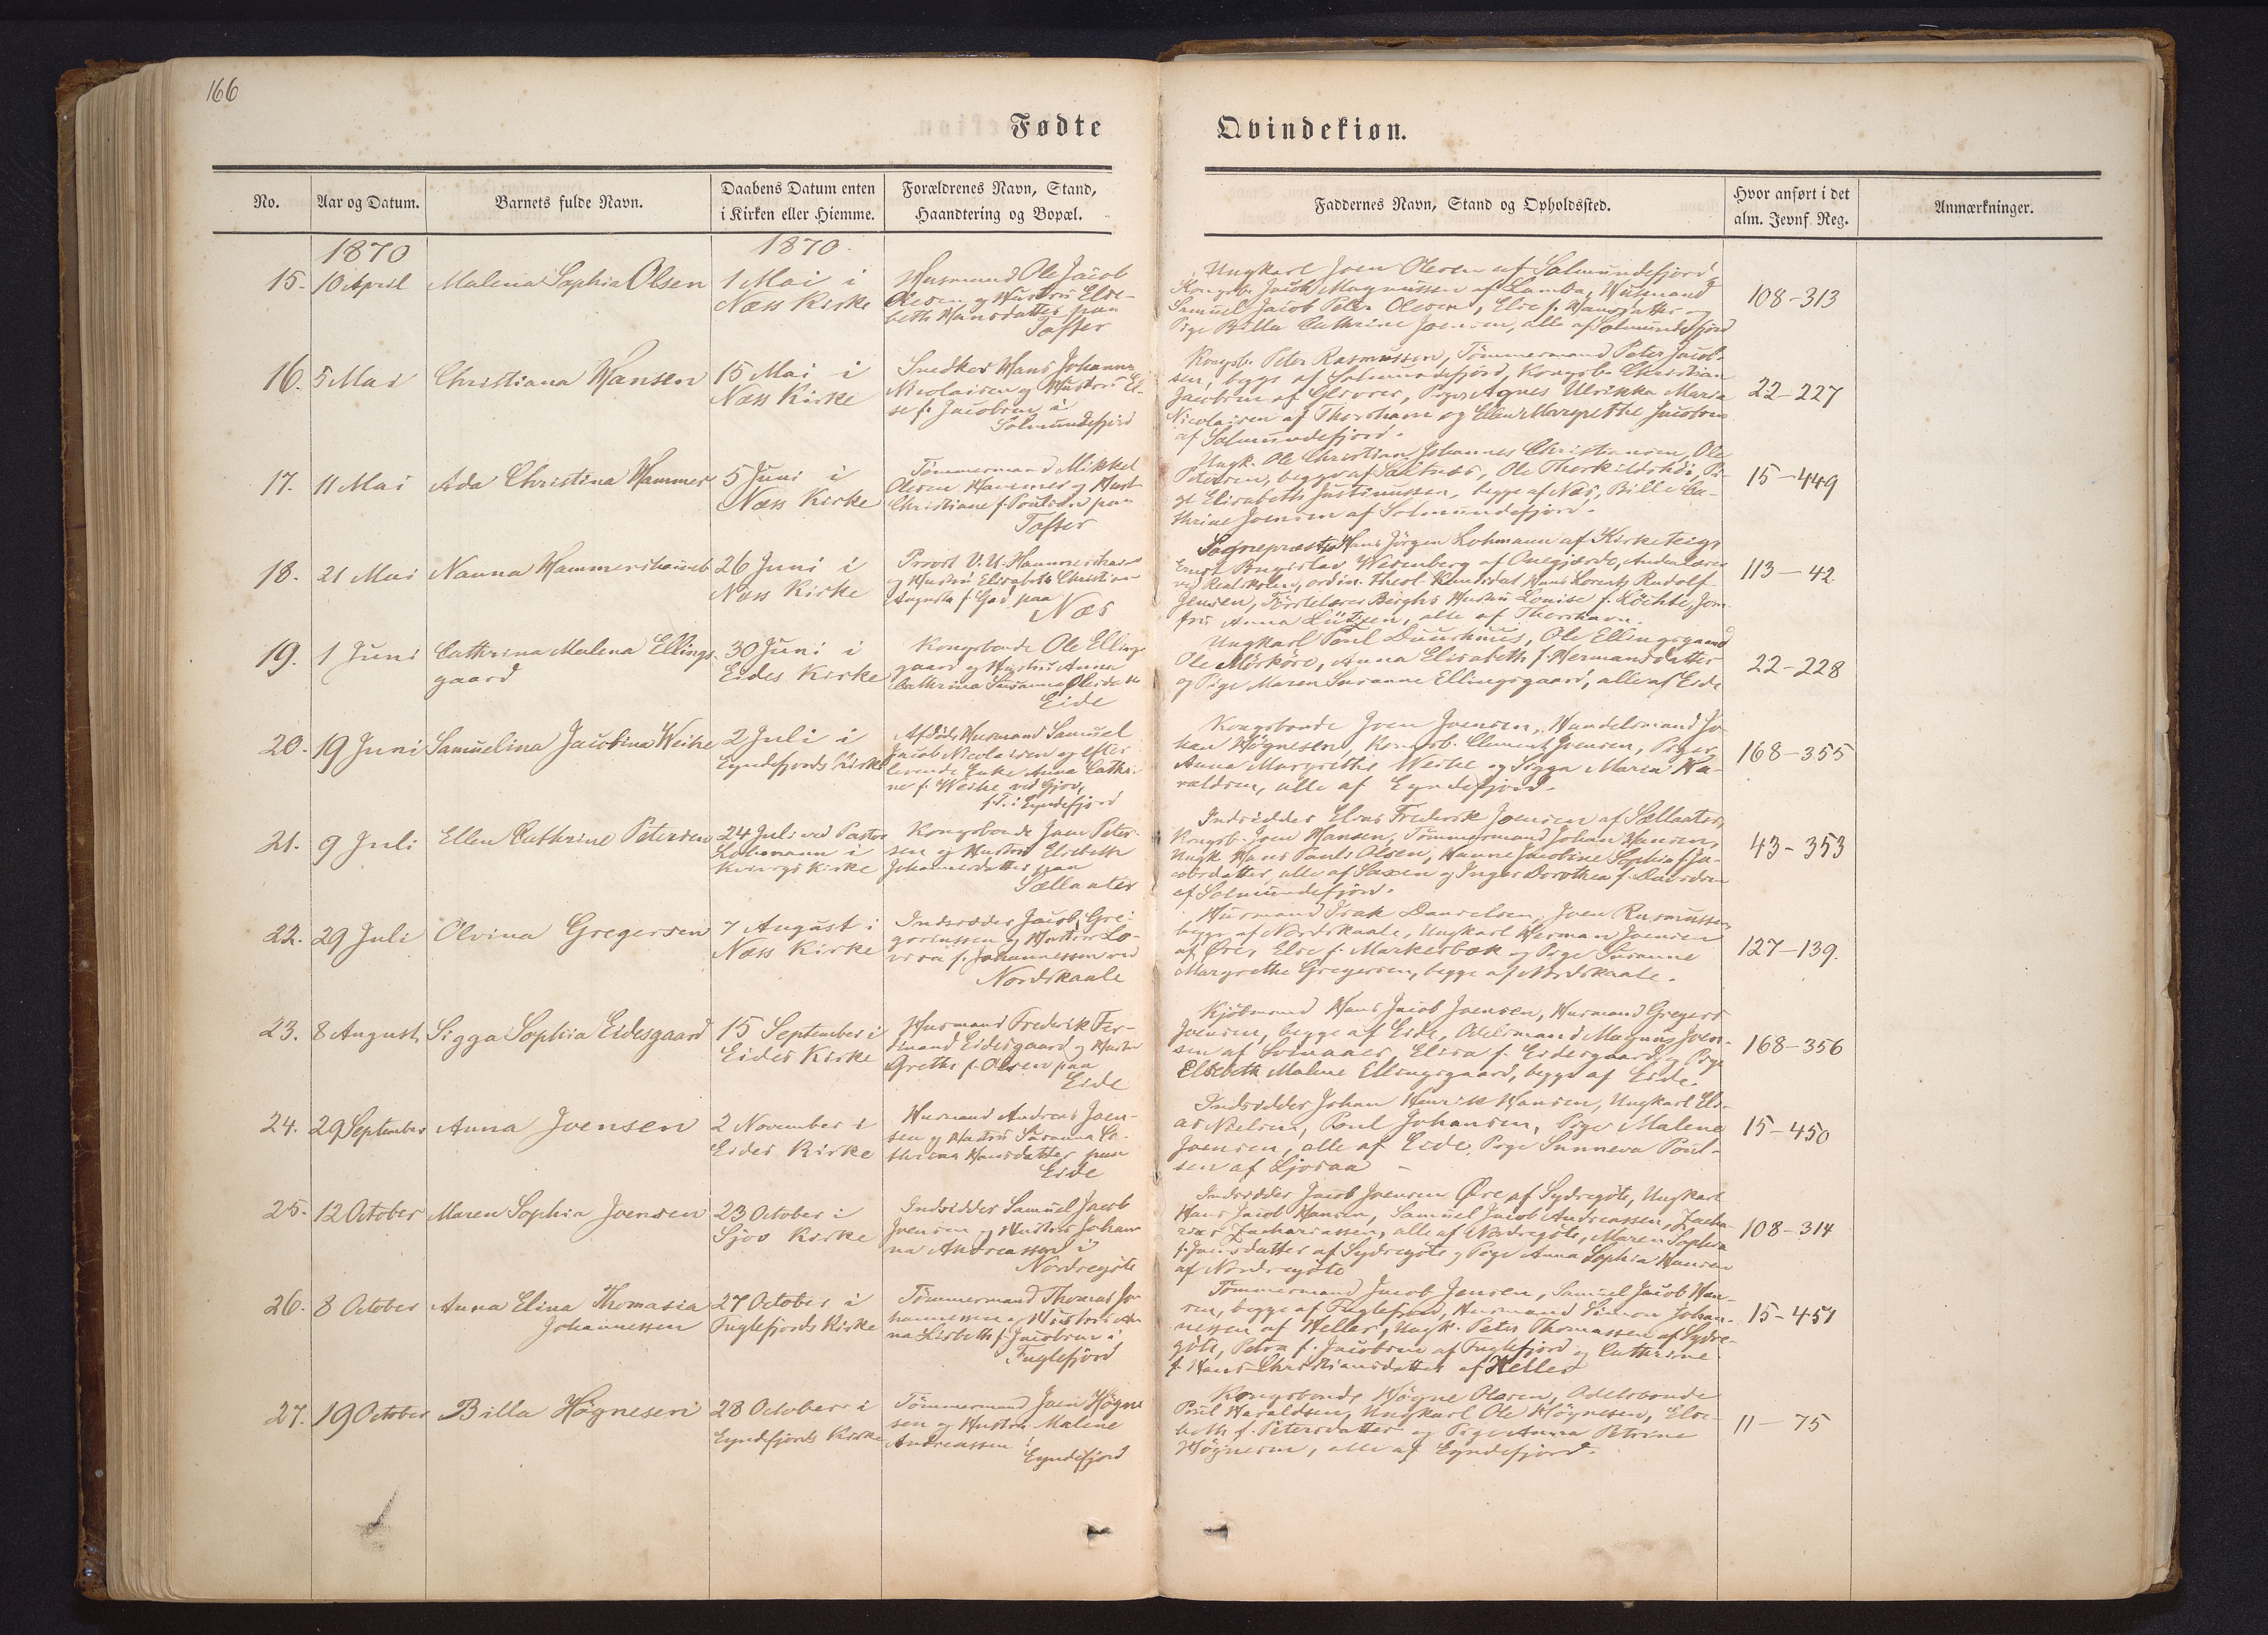 166
Fødte
Qvindekiøn.
No.
Aar og Datum.
Barnets fulde Navn.
Daabens Datum enten
i Kirken eller Hiemme.
Forældrenes Navn, Stand,
Haandtering og Bopæl.
Faddernes Navn, Stand og Opholdssted.
Hvor anført i det
alm. Jevnf. Reg.
Anmærkninger.
1870
1870.
15.
10 April
Malena Sophia Olsen
1 Mai i
Næss Kirke
Husmand Ole Jacob
Olesen og Hustru Else-
beth Hansdatter paa
Tofter
Ungkarl Joen Olesen af Solmundefjord,
Kongsb. Jacob Magnussen af Lamba, Husmand
Samuel Jacob Peter Olesen, Else f. Hansdatter og
Pige Billa Cathrine Joensen, alle af Solmundefjord
108-313
16.
5 Mai
Christiana Hansen
15 Mai i
Næss Kirke
Snedker Hans Johannes
Nicolaisen og Hustru El-
se f. Jacobsen i
Solmundefjord
Kongsb. Peter Rasmussen, Tömmermand Peter Jacob-
sen, begge af Solmundefjord, Kongsb. Christian
Jacobsen af Glivrer, Piger Agnes Ulrikka Maria
Nicolaisen af Thorshavn og Ellen Margrethe Jacobsen
af Solmundefjord.
22-227
17.
11 Mai
Ada Christina Hammer
5 Juni i
Næss Kirke
Tömmermand Mikkel
Olesen Hammer og Hust.
Christiane f. Poulsen paa
Tofter
Ungk. Ole Christian Johannes Christiansen, Ole
Petersen, begge af Saltnæs, Ole Thorkildshöi, Pi-
ge Elisabeth Justinussen, begge af Næs, Bille Ca-
thrine Joensen af Solmundefjord.
15-449
18.
21 Mai
Nanna Hammershaimb
26 Juni i
Næss Kirke
Provst V. U. Hammershaimb
og Hustru Elisabeth Christian
Augusta f. Gad paa
Næs
Sognepræst Hans Jörgen Lohmann af Kirketeig,
Ernst Bugislav Wesenberg af Onegjærde, Andenlærer
ved Realskolen, ordin. theol. Kandidat Hans Lorentz Rudolf
Jensen, Förstelærer Berghs Hustru Louise f. Löchte, Jom-
fru Anna Lützen, alle af Thorshavn.
113-42.
19.
1 Juni
Cathrina Malena Ellings-
gaard
30 Juni i
Eides Kirke
Kongsbonde Ole Ellings-
gaard og Hustru Anna
Cathrina Susanna
Eide
Ungkarl Poul Duurhuus, Ole Ellingsgaard
Ole Mörköre, Anna Elisabeth f. Hermansdatter
og Pige Maren Susanne Ellingsgaard, alle af Eide
22-228
20.
19 Juni
Samuelina Jacobina Weihe
2 Juli i
Eyndefjords Kirke
Afdöde Husmand Samuel
Jacob Nicolaisen og efter-
levende Enke Anna Cathri-
ne f. Weihe ved Gjov,
f. T. i Eyndefjord
Kongsbonde Joen Joensen, Handelsmand Jo-
han Högnesen, Kongsb. Clement Joensen, Piger
Anna Margrethe Weihe og Sigga Maria Ha-
raldsen, alle af Eyndefjord.
168-355
21.
9 Juli
Ellen Cathrine Petersen
24 Juli ved Pastor
Lohmann i
Kvivigs Kirke
Kongsbonde Joen Peter-
sen og Hustru Elsebeth
Johannesdatter paa
Sællaater
Indsidder Elias Frederik Joensen af Sællaater,
Kongsb. Joen Hansen, Tömmermand Johan Hansen,
Ungk. Hans Pauli Olsen, Hanne Jacobine Sophia f. Ja-
cobsdatter, alle af Saxen og Inger Dorothea f. Davidsen
af Solmundefjord.
43-353
22.
29 Juli
Olvina Gregersen
7 August i
Næss Kirke
Indsidder Jacob Gre-
goriussen og Hustru Lo-
visa f. Johannessen ved
Nordskaale
Husmand Isak Danielsen, Joen Rasmussen,
begge af Nordskaale, Ungkarl Herman Joensen
af Ore, Else f. Markesbak og Pige Susanne
Margrethe Gregersen, begge af Nordskaale.
127-139.
23.
8 August
Sigga Sophia Eidesgaard
15 September i
Eides Kirke
Husmand Frederik Fer-
dinand Eidesgaard og Hustru
Grethe f. Olsen paa
Eide
Kjöbmand Hans Jacob Joensen, Husmand Gregers
Joensen, begge af Eide, Odelsmand Magnus Joen-
sen af Svinaaer, Elisa f. Eidesgaard og Pige
Elsebeth Malene Ellingsgaard, begge af Eide.
168-356
24.
29 September
Anna Joensen
2 November i
Eides Kirke
Husmand Andreas Joen-
sen og Hustru Susanna Ca-
thrina Hansdatter paa
Eide
Indsidder Johan Henrik Hansen, Ungkarl Eli-
as Nielsen, Poul Johansen, Pige Malene
Joensen, alle af Eide, Pige Sunneva Poul-
sen af Ljosaa
15-450
25.
12 October
Maren Sophia Joensen
23 October i
Sjov Kirke
Indsidder Samuel Jacob
Joensen og Hustru Johan-
na Andreassen i
Nordregöte
Indsidder Jacob Joensen Öre af Sydregöte, Ungkarl
Hans Jacob Hansen, Samuel Jacob Andreassen, Zacha-
rias Zachariassen, alle af Nordregöte, Maren Sophia
f. Joensdatter af Sydregöte og Pige Anna Sophia Hansen
af Nordregöte
108-314
26.
8 October
Anna Elina Thomasia
Johannessen
27 October i
Fuglefjords Kirke
Tömmermand Thomas Jo-
hannessen og Hustru An-
na Lisbeth f. Jacobsen i
Fuglefjord
Tömmermand Jacob Jensen, Samuel Jacob Han-
sen, begge af Fuglefjord, Husmand Simon Johan-
nessen af Heller, Ungk. Peter Thomassen af Sydre-
göte, Petra f. Jacobsen af Fuglefjord og Cathrine
f. Hans-Christiansdatter af Heller
15-451
27.
19 October
Billa Högnesen
28 October i
Eyndefjords Kirke
Tömmermand Joen Högne-
sen og Hustru Malene
Andreassen i
Eyndefjord
Kongsbonde Högne Olesen, Odelsbonde
Poul Haraldsen, Ungkarl Ole Högnesen, Else-
beth f. Petersdatter og Pige Anna Petrine
Högnesen, alle af Eyndefjord.
11-75